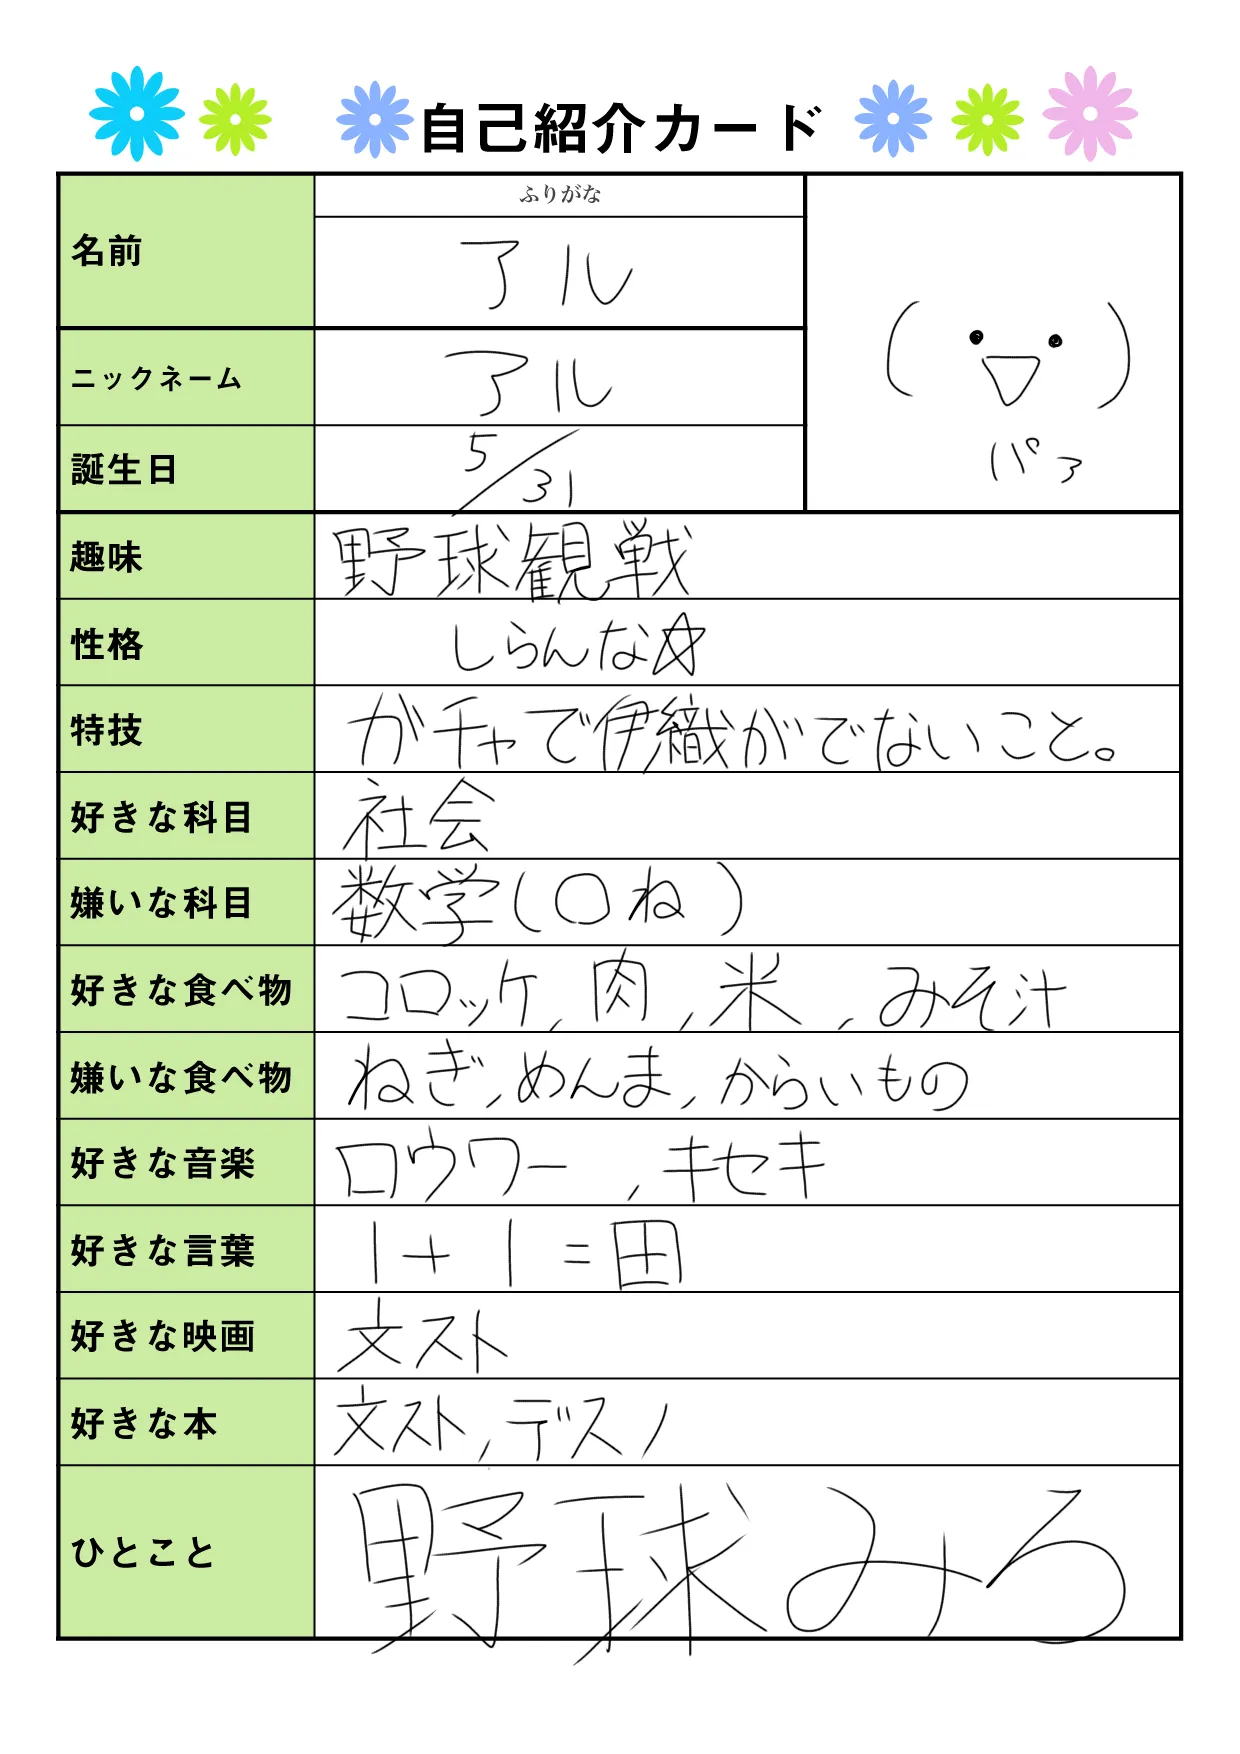 自己紹介カード
名前
ふりがな
アル
ニックネーム
アル
誕生日
5/31
パァ
趣味
野球観戦
性格
しらんな☆
特技
ガチャで伊織がでないこと。
好きな科目
社会
嫌いな科目
数学(〇ね)
好きな食べ物
コロッケ,肉,米,みそ汁
嫌いな食べ物
ねぎ,めんま,からいもの
好きな音楽
ロウワー,キセキ
好きな言葉
1+1=田
好きな映画
文スト
好きな本
文スト,デスノ
ひとこと
野球みろ